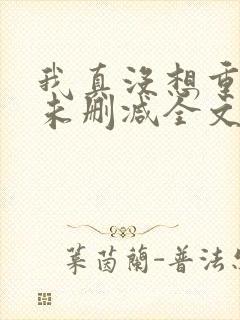 我真没想重
未删减全文
叶茵兰-普法